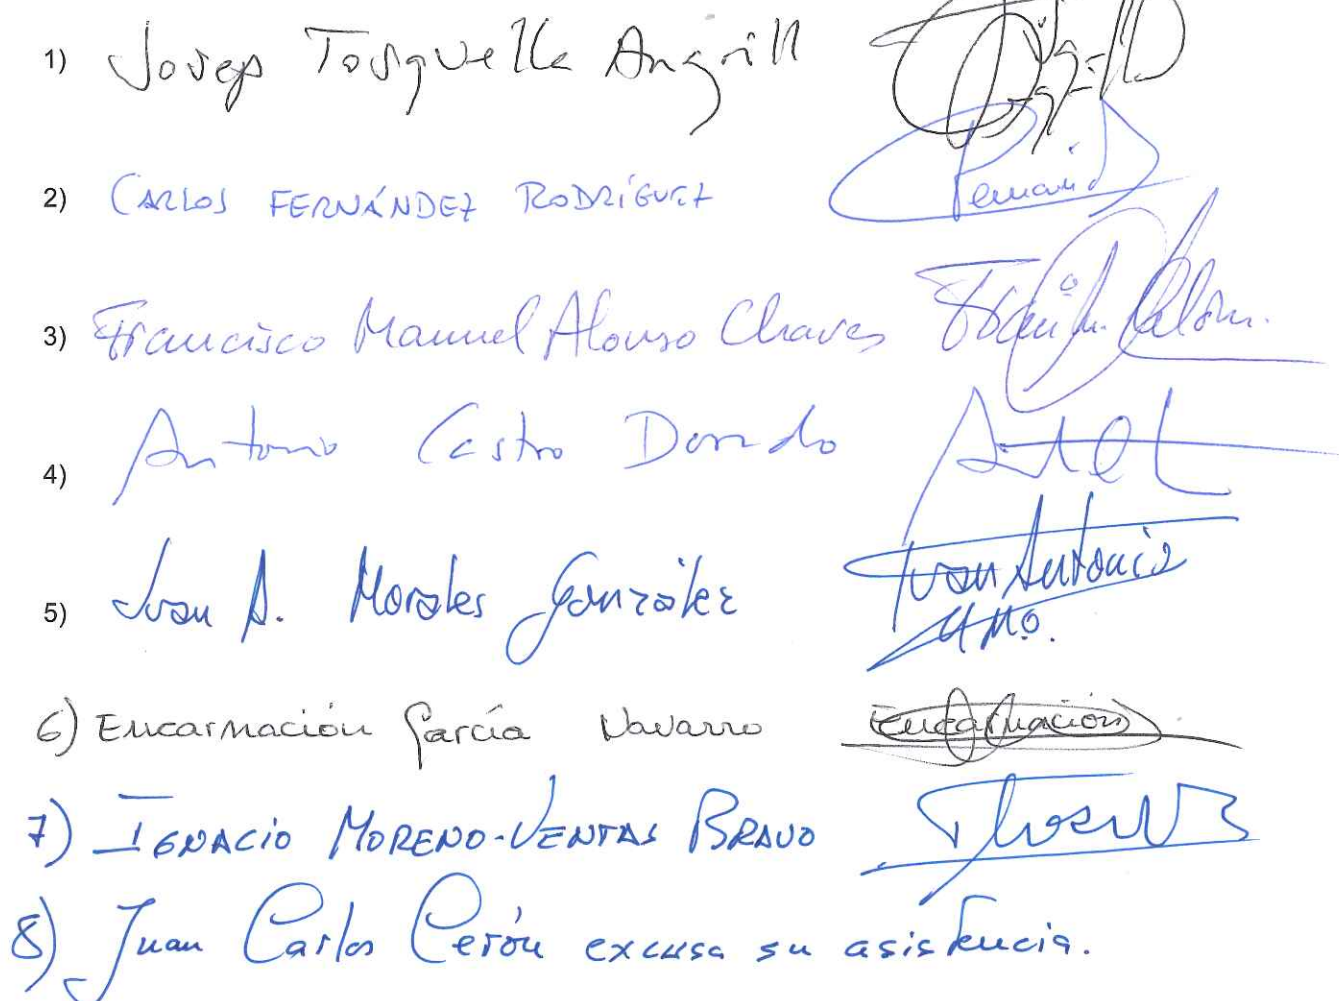 1) Josep Tosquella Angrill
2) CARLOS FERNÁNDEZ RODRÍGUEZ
3) Francisco Manuel Alonso Chaves
4) Antonio Castro Dorado
5) Juan A. Morales González Juan Antonio
6) Encarnación García Navarro Encarnación
7) IGNACIO MORENO-VENTAS BRAVO
8) Juan Carlos Cerón excusa su asistencia.